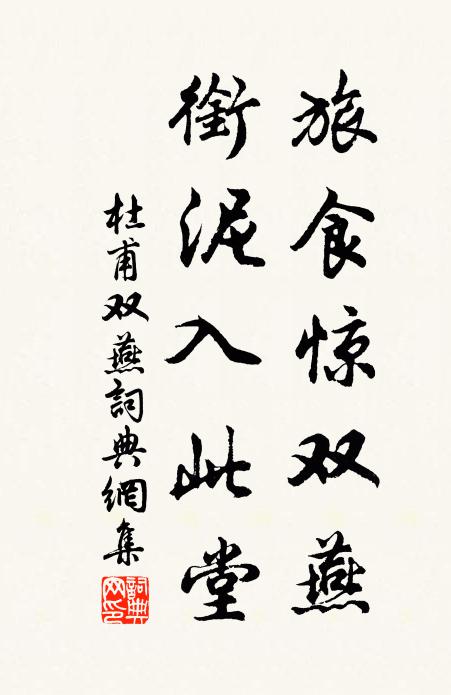 旅食惊双燕
銜泥入此堂
杜甫双燕詞典網集
詞典
网印